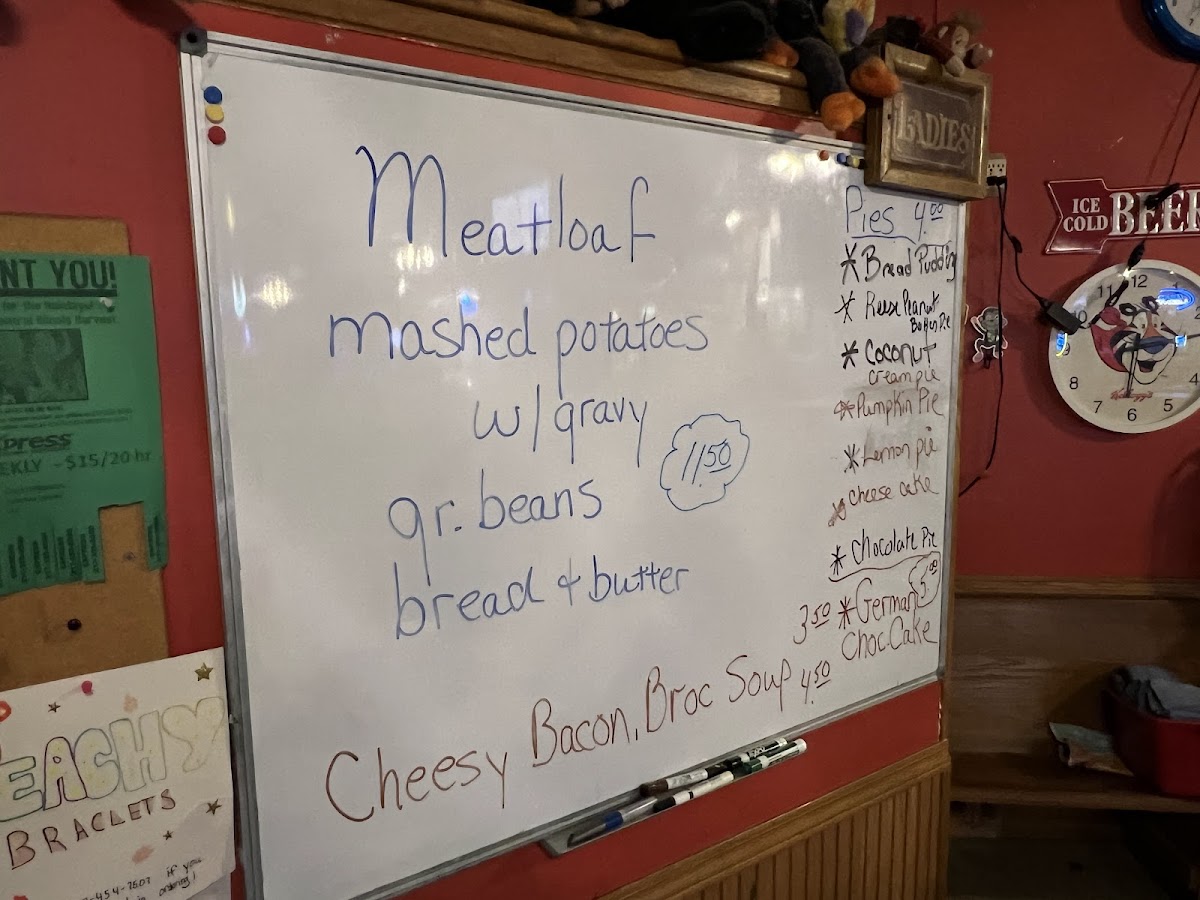 Meatloaf
mashed potatoes
w/gravy
11.50
gr. beans
bread & butter
Cheesy Bacon, Broc Soup
3.50 4.50
Pies 4.00
* Bread Pudding
* Reese Peanut
Butter Pie
* Coconut
cream pie
* Pumpkin Pie
* Lemon pie
* cheese cake
* Chocolate Pie
* German 5.00
Choc. Cake
LADIES
ICE
COLD BEER
11 12
8 7 6 5 4
NT YOU!
press
EEKLY - $15/20 hr
EACHY
BRACLETS
-454-7607 if you
ordering!